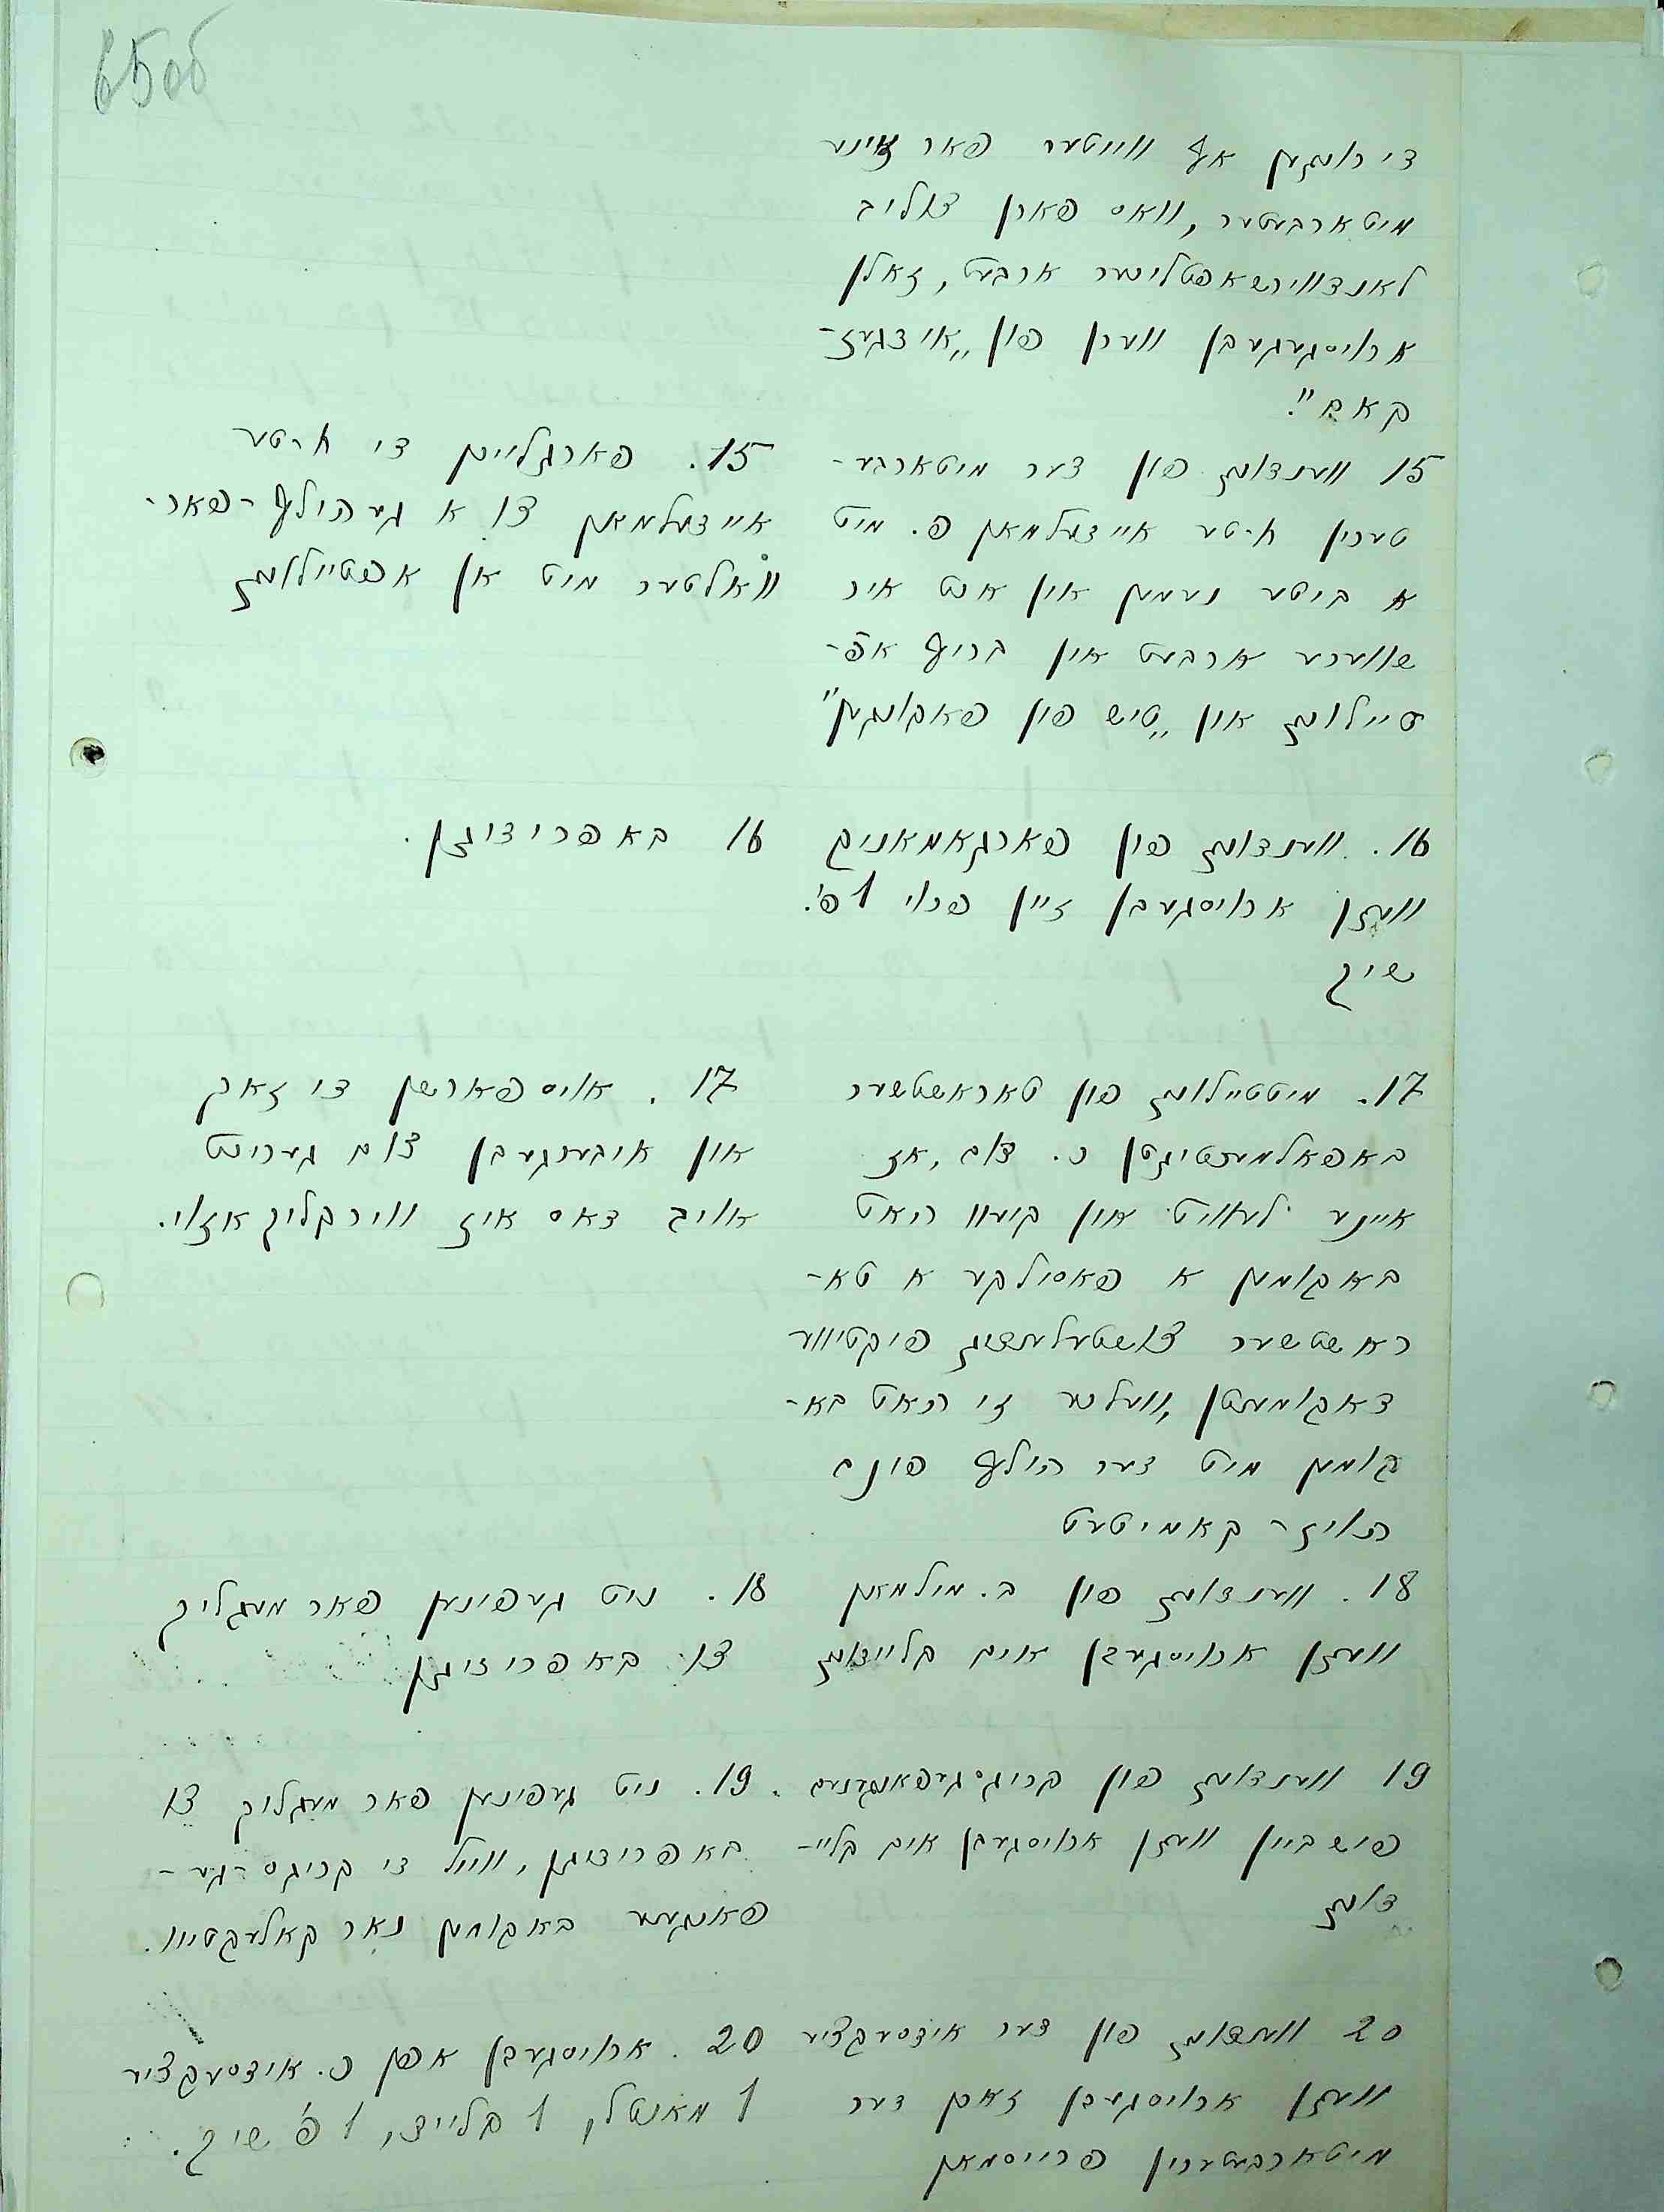 65об
די ראנגען אף ווייטער פאר זיינע
מיטארבעטער, וואס פארן צוליב
לאנדווירשאפטליכער ארבעט, זאלן
ארויסגעגעבן ווערן פון
קאם".
15 ווענדונג פון דער מיטארבע-
טערין איטע איידעלמאן פ. מיט
א ביטע נעמען און איר
שווערע ארבעט אין בריוו אפ-
טיילונג און „טיש פון פאקונגען"
15. פארגלייכן די איטע
איידעלמאן צו א געהילף-פאר-
וואלטער מיט אן אפטיילונג
16. ווענדונג פון פארגאמאניק
וועגן ארויסגעבן זיין פרוי 1 פ.
שיך
16 באפרידיגן.
17. מיטטיילונג פון טאראשטשער
באפאלמעכטיגטן כ. צוב, אז
איינע לעוויט אין קיעוו האט
באקומען א פאסילקע א טא-
ראשטשער צושטעלנדיג פיקטיווע
דאקומענטן, וועלכע זי האט בא-
קומען מיט דער הילף פונם
הויז-קאמיטעט
17. אויספארשן די זאך
און איבערגעבן צום געריכט
אויב דאס איז ווירקליך אזוי.
18. ווענדונג פון ב. מילמאן
וועגן ארויסגעבן אים קליידונג
18. ניט געפינען פאר מעגליך
צו באפרידיגן
19 ווענדונג פון קריגסגעפאנגענעם
פישביין וועגן ארויסגעבן אים קליי-
דונג
19. ניט געפינען פאר מעגליך צו
באפרידיגן, ווייל די קריגס-גע-
פאנגענע באקומען נאר קאלעקטיוו.
20 ווענדונג פון דער אידסעקציע
וועגן ארויסגעבן זאכן דער
מיטארבעטערין פרייסמאן
20. ארויסגעבן אפן כ. אידסעקציע
1 מאנטל, 1 קלייד, 1 פ שיך.